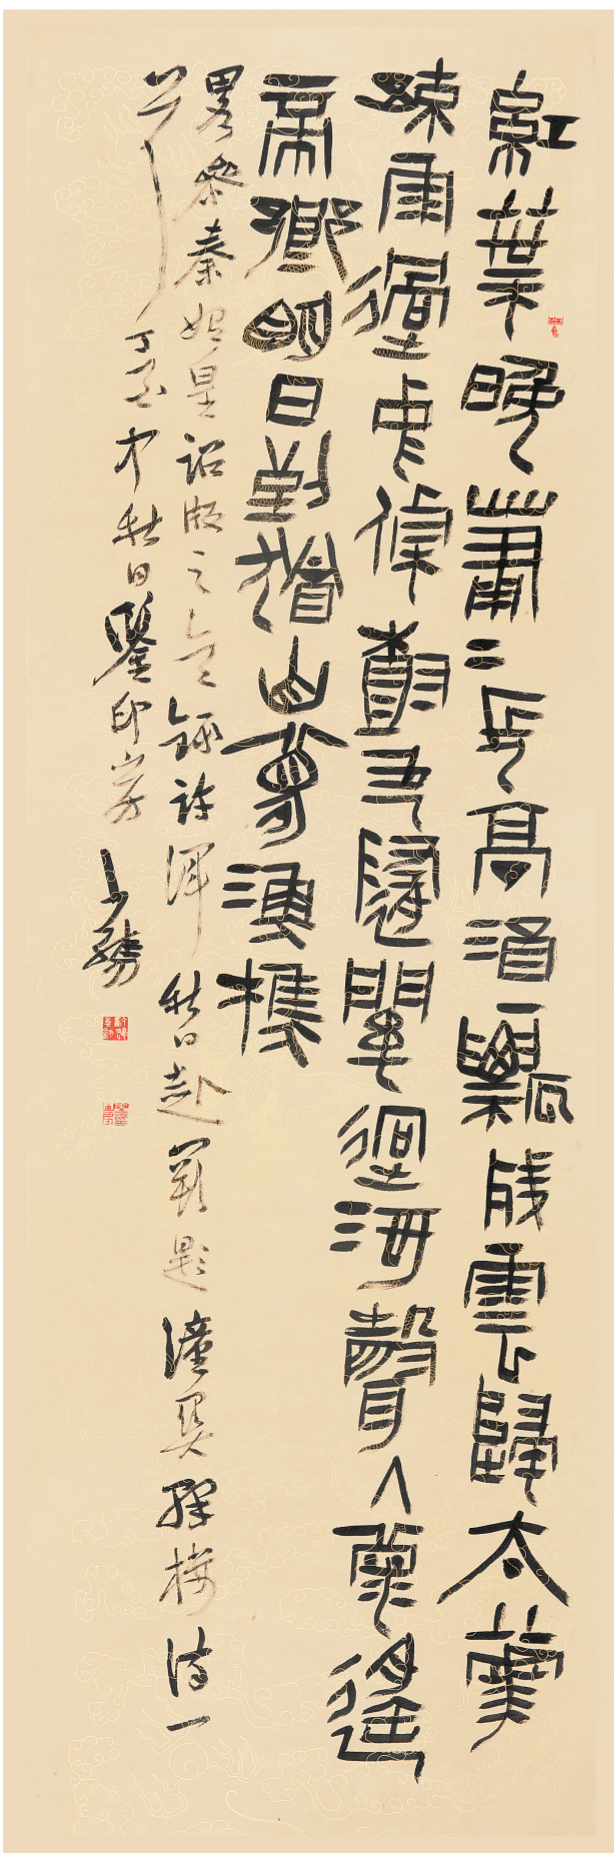 紅葉晚蕭〻長亭酒一瓢殘雲歸太華
疎雨過中條樹色隨關迥河聲入海遙
帝鄉明日到猶自夢漁樵
畧參秦始皇詔版之意錄許渾秋日赴闕題潼關驛樓詩一
首丁亥中秋日鑒印山房